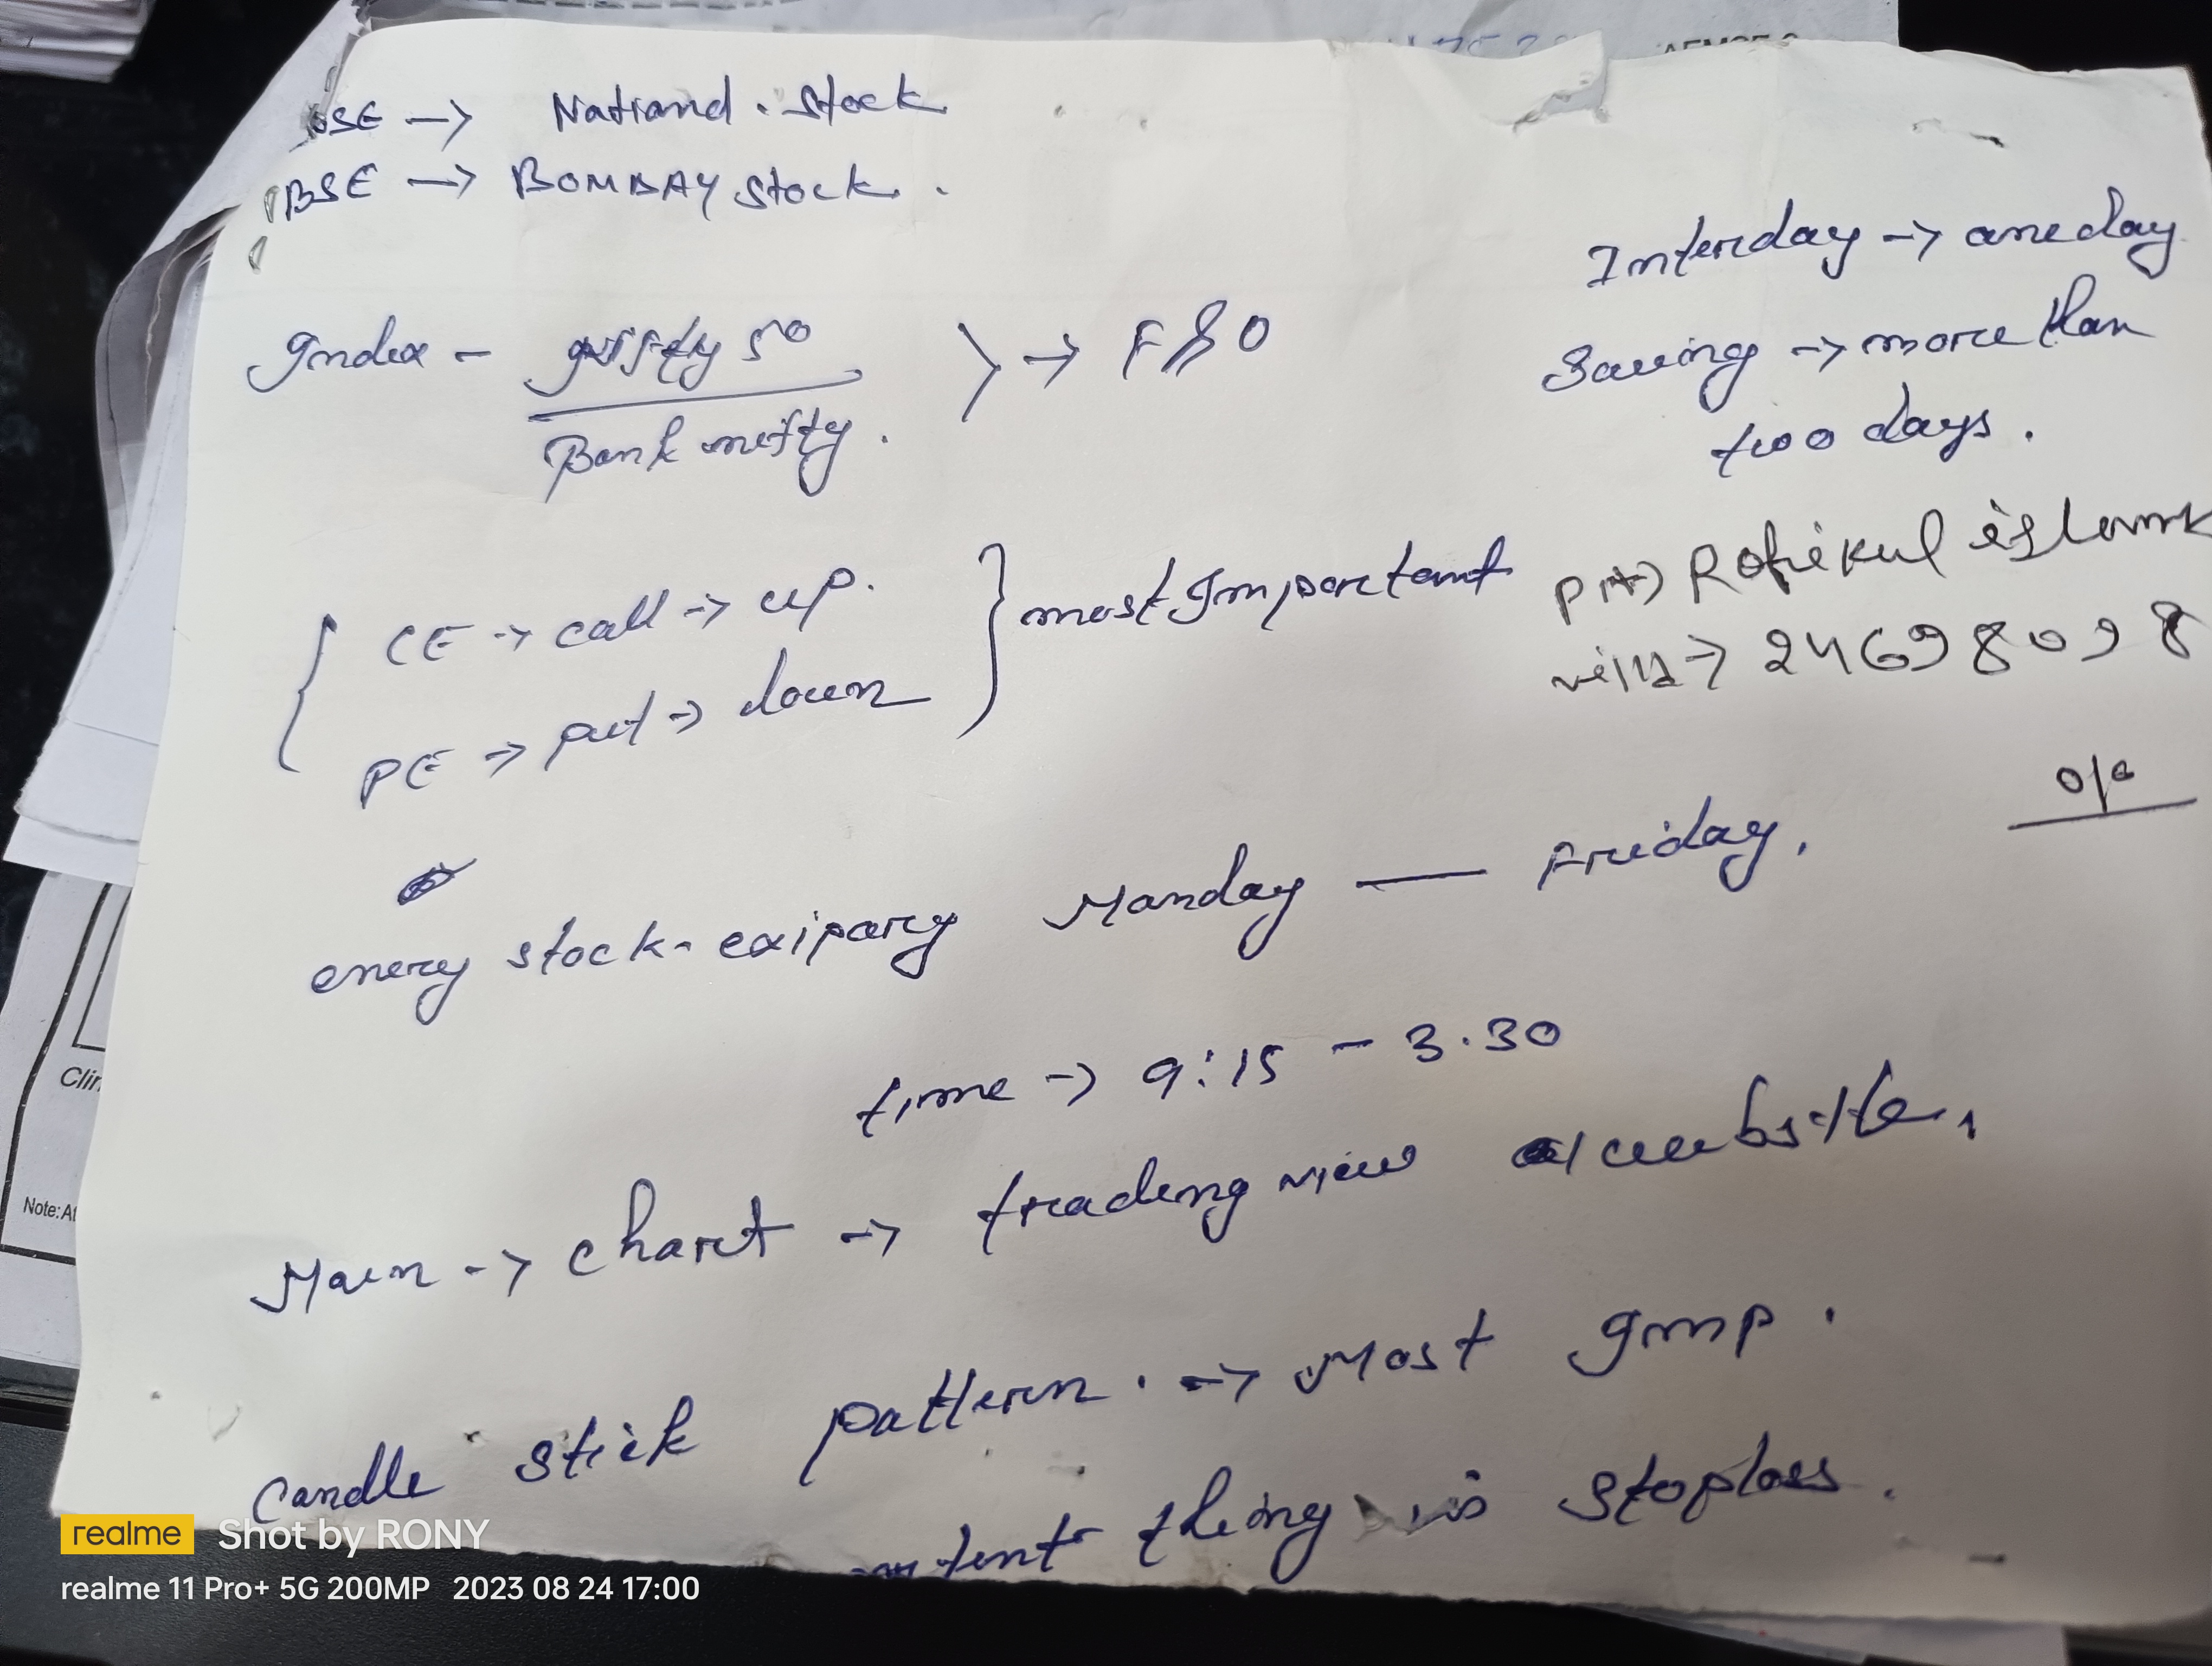 NSE → National . Stock
BSE → BOMBAY Stock .
Interday → one day
Index - nifty 50 → F & O
Swing → more than
Bank nifty .
two days .
CE → call → up .
most Important
PE → put → down
Rofikul islam
→ 24698098
0/0
every stock - exipary Monday — Friday .
time → 9:15 - 3.30
Main → chart → trading view
Candle stick pattern . → Most Imp .
thing is stoploss .
realme Shot by RONY
realme 11 Pro+ 5G 200MP 2023 08 24 17:00
Clin
Note:At